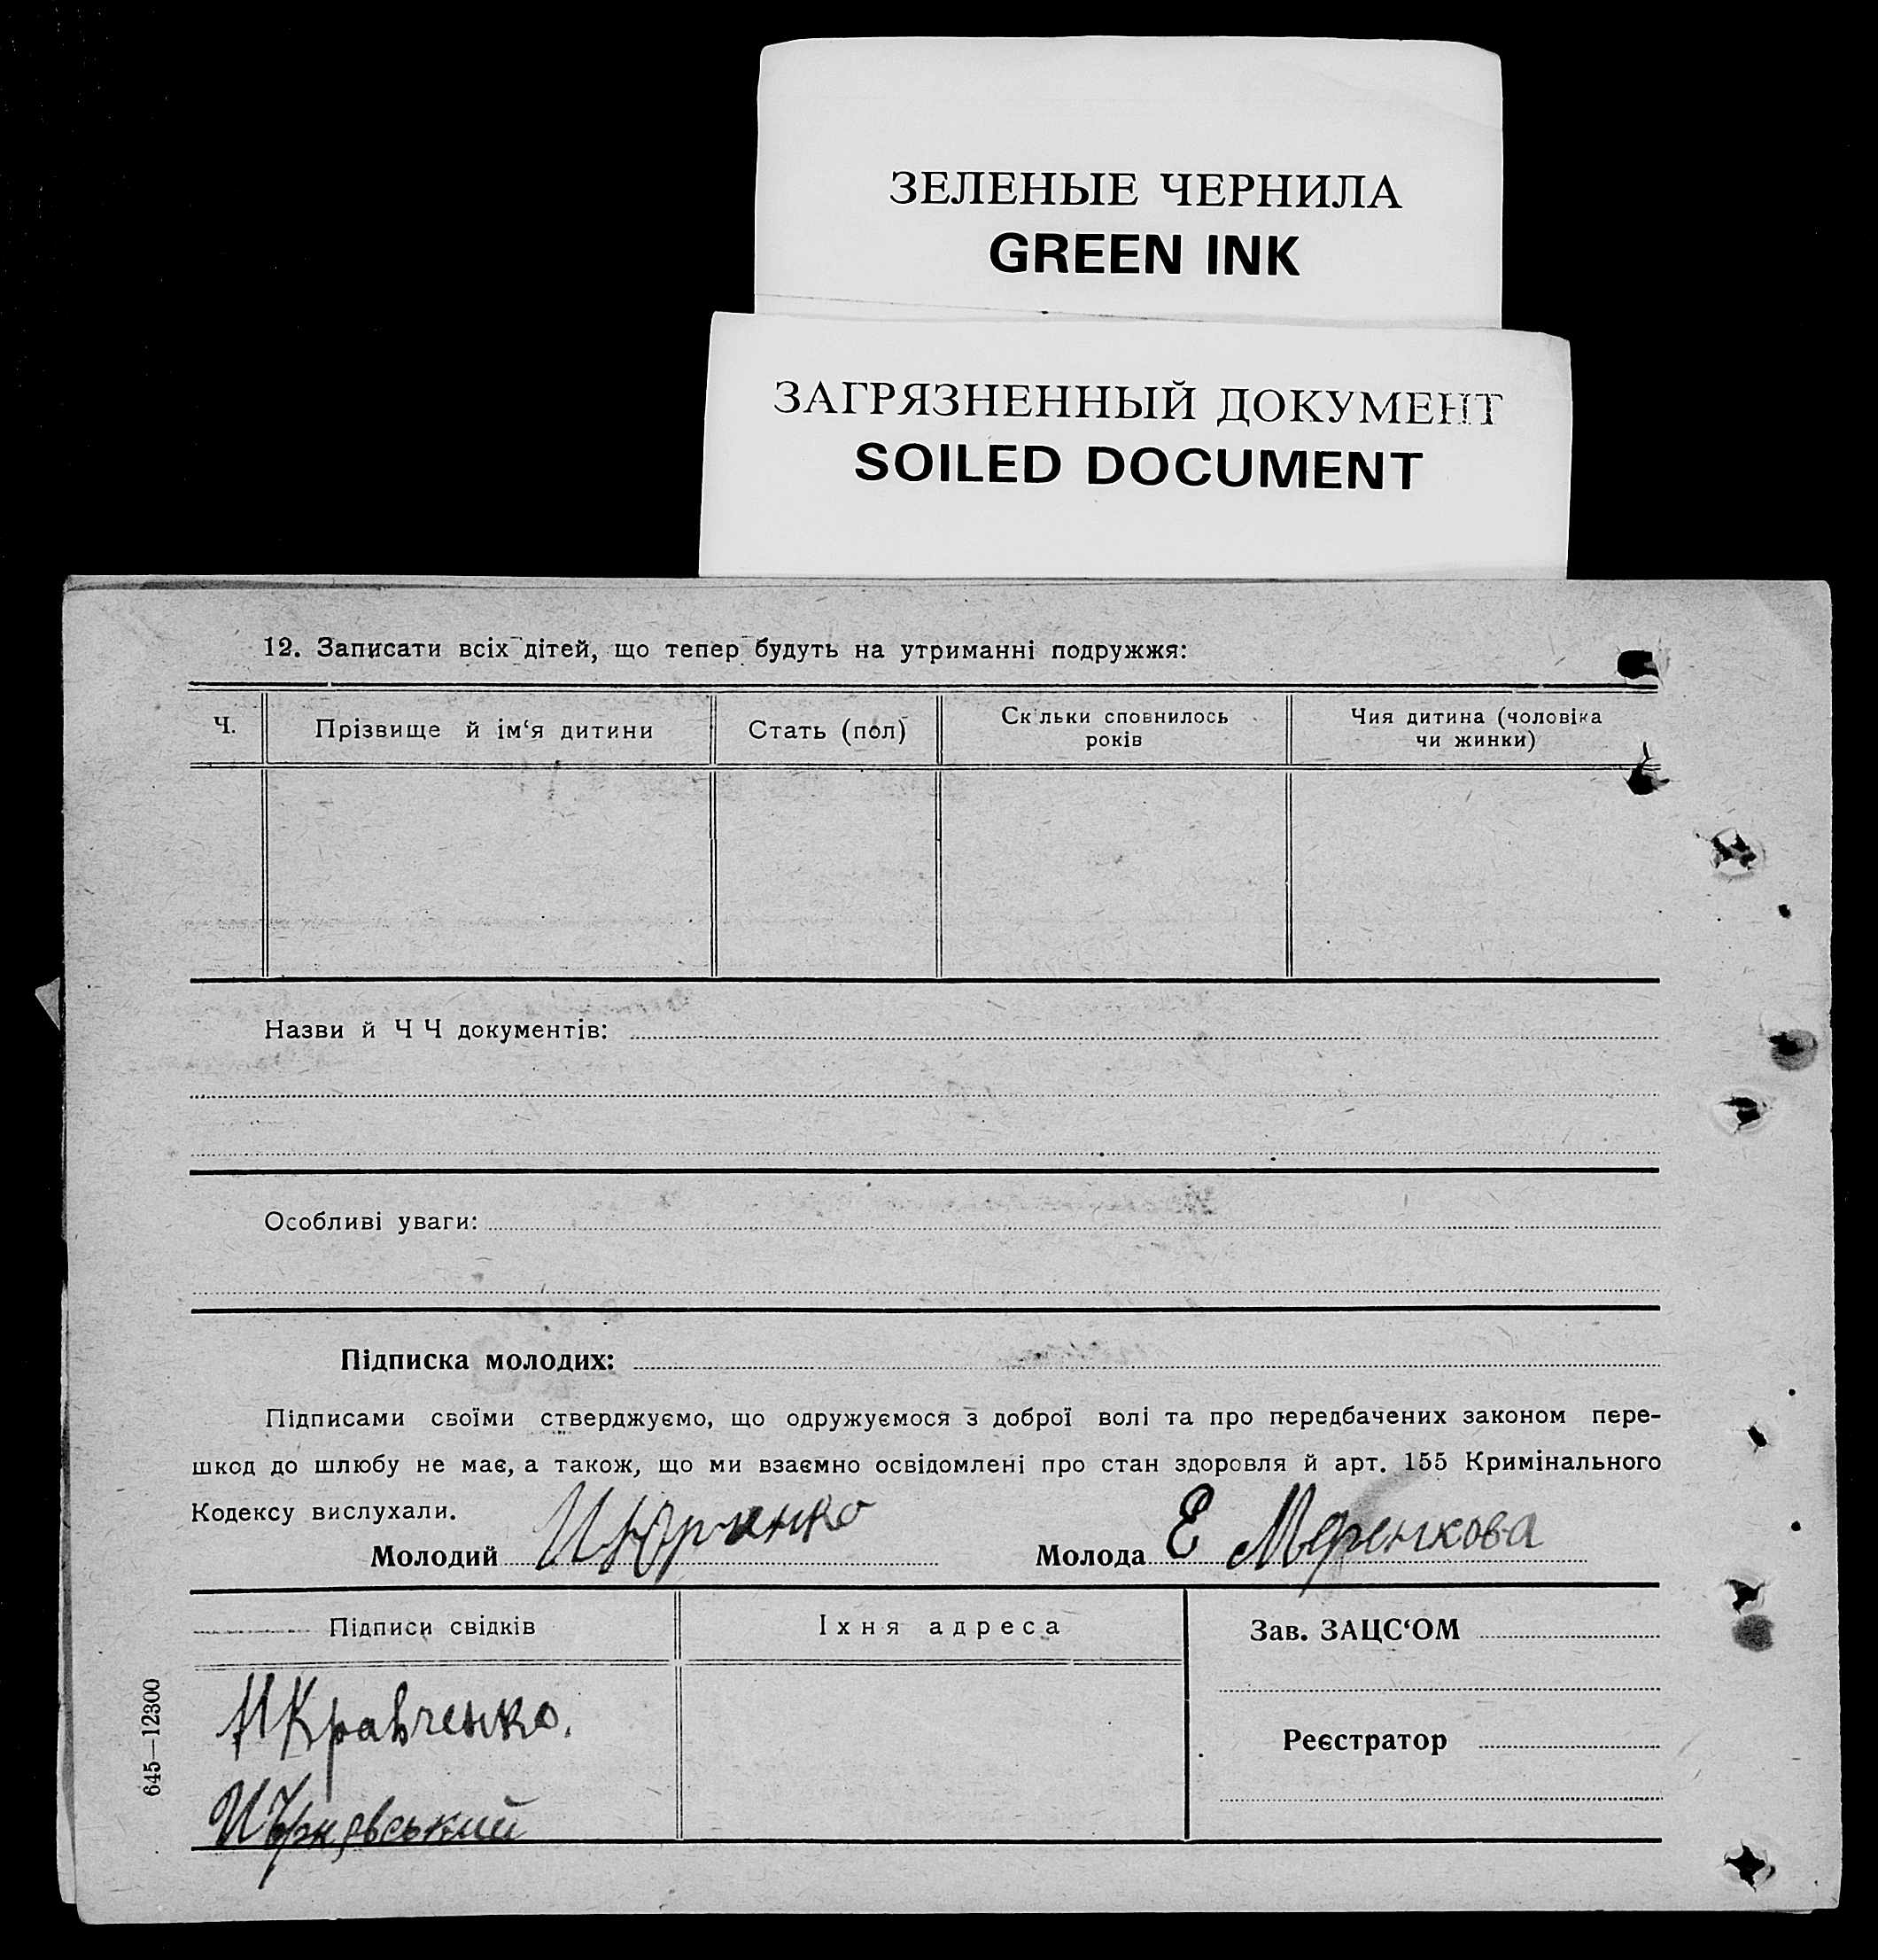 ЗЕЛЕНЫЕ ЧЕРНИЛА
GREEN INK
ЗАГРЯЗНЕННЫЙ ДОКУМЕНТ
SOILED DOCUMENT
12. Записати всіх дітей, що тепер будуть на утриманні подружжя:
Ч. Прізвище й ім‘я дитини Стать (пол) Скільки сповнилось років Чия дитина (чоловіка чи жинки)
Назви й Ч Ч документів:
Особливі уваги:
Підписка молодих:
Підписами своїми стверджуємо, що одружуємося з доброї волі та про передбачених законом пере-
шкод до шлюбу не має, а також, що ми взаємно освідомлені про стан здоровля й арт. 155 Кримінального
Кодексу вислухали.
Молодий И Юрченко Молода Е Меренкова
Підписи свідків Іхня адреса Зав. ЗАЦС‘ОМ
Н Кравченко.
Реєстратор
645—12300